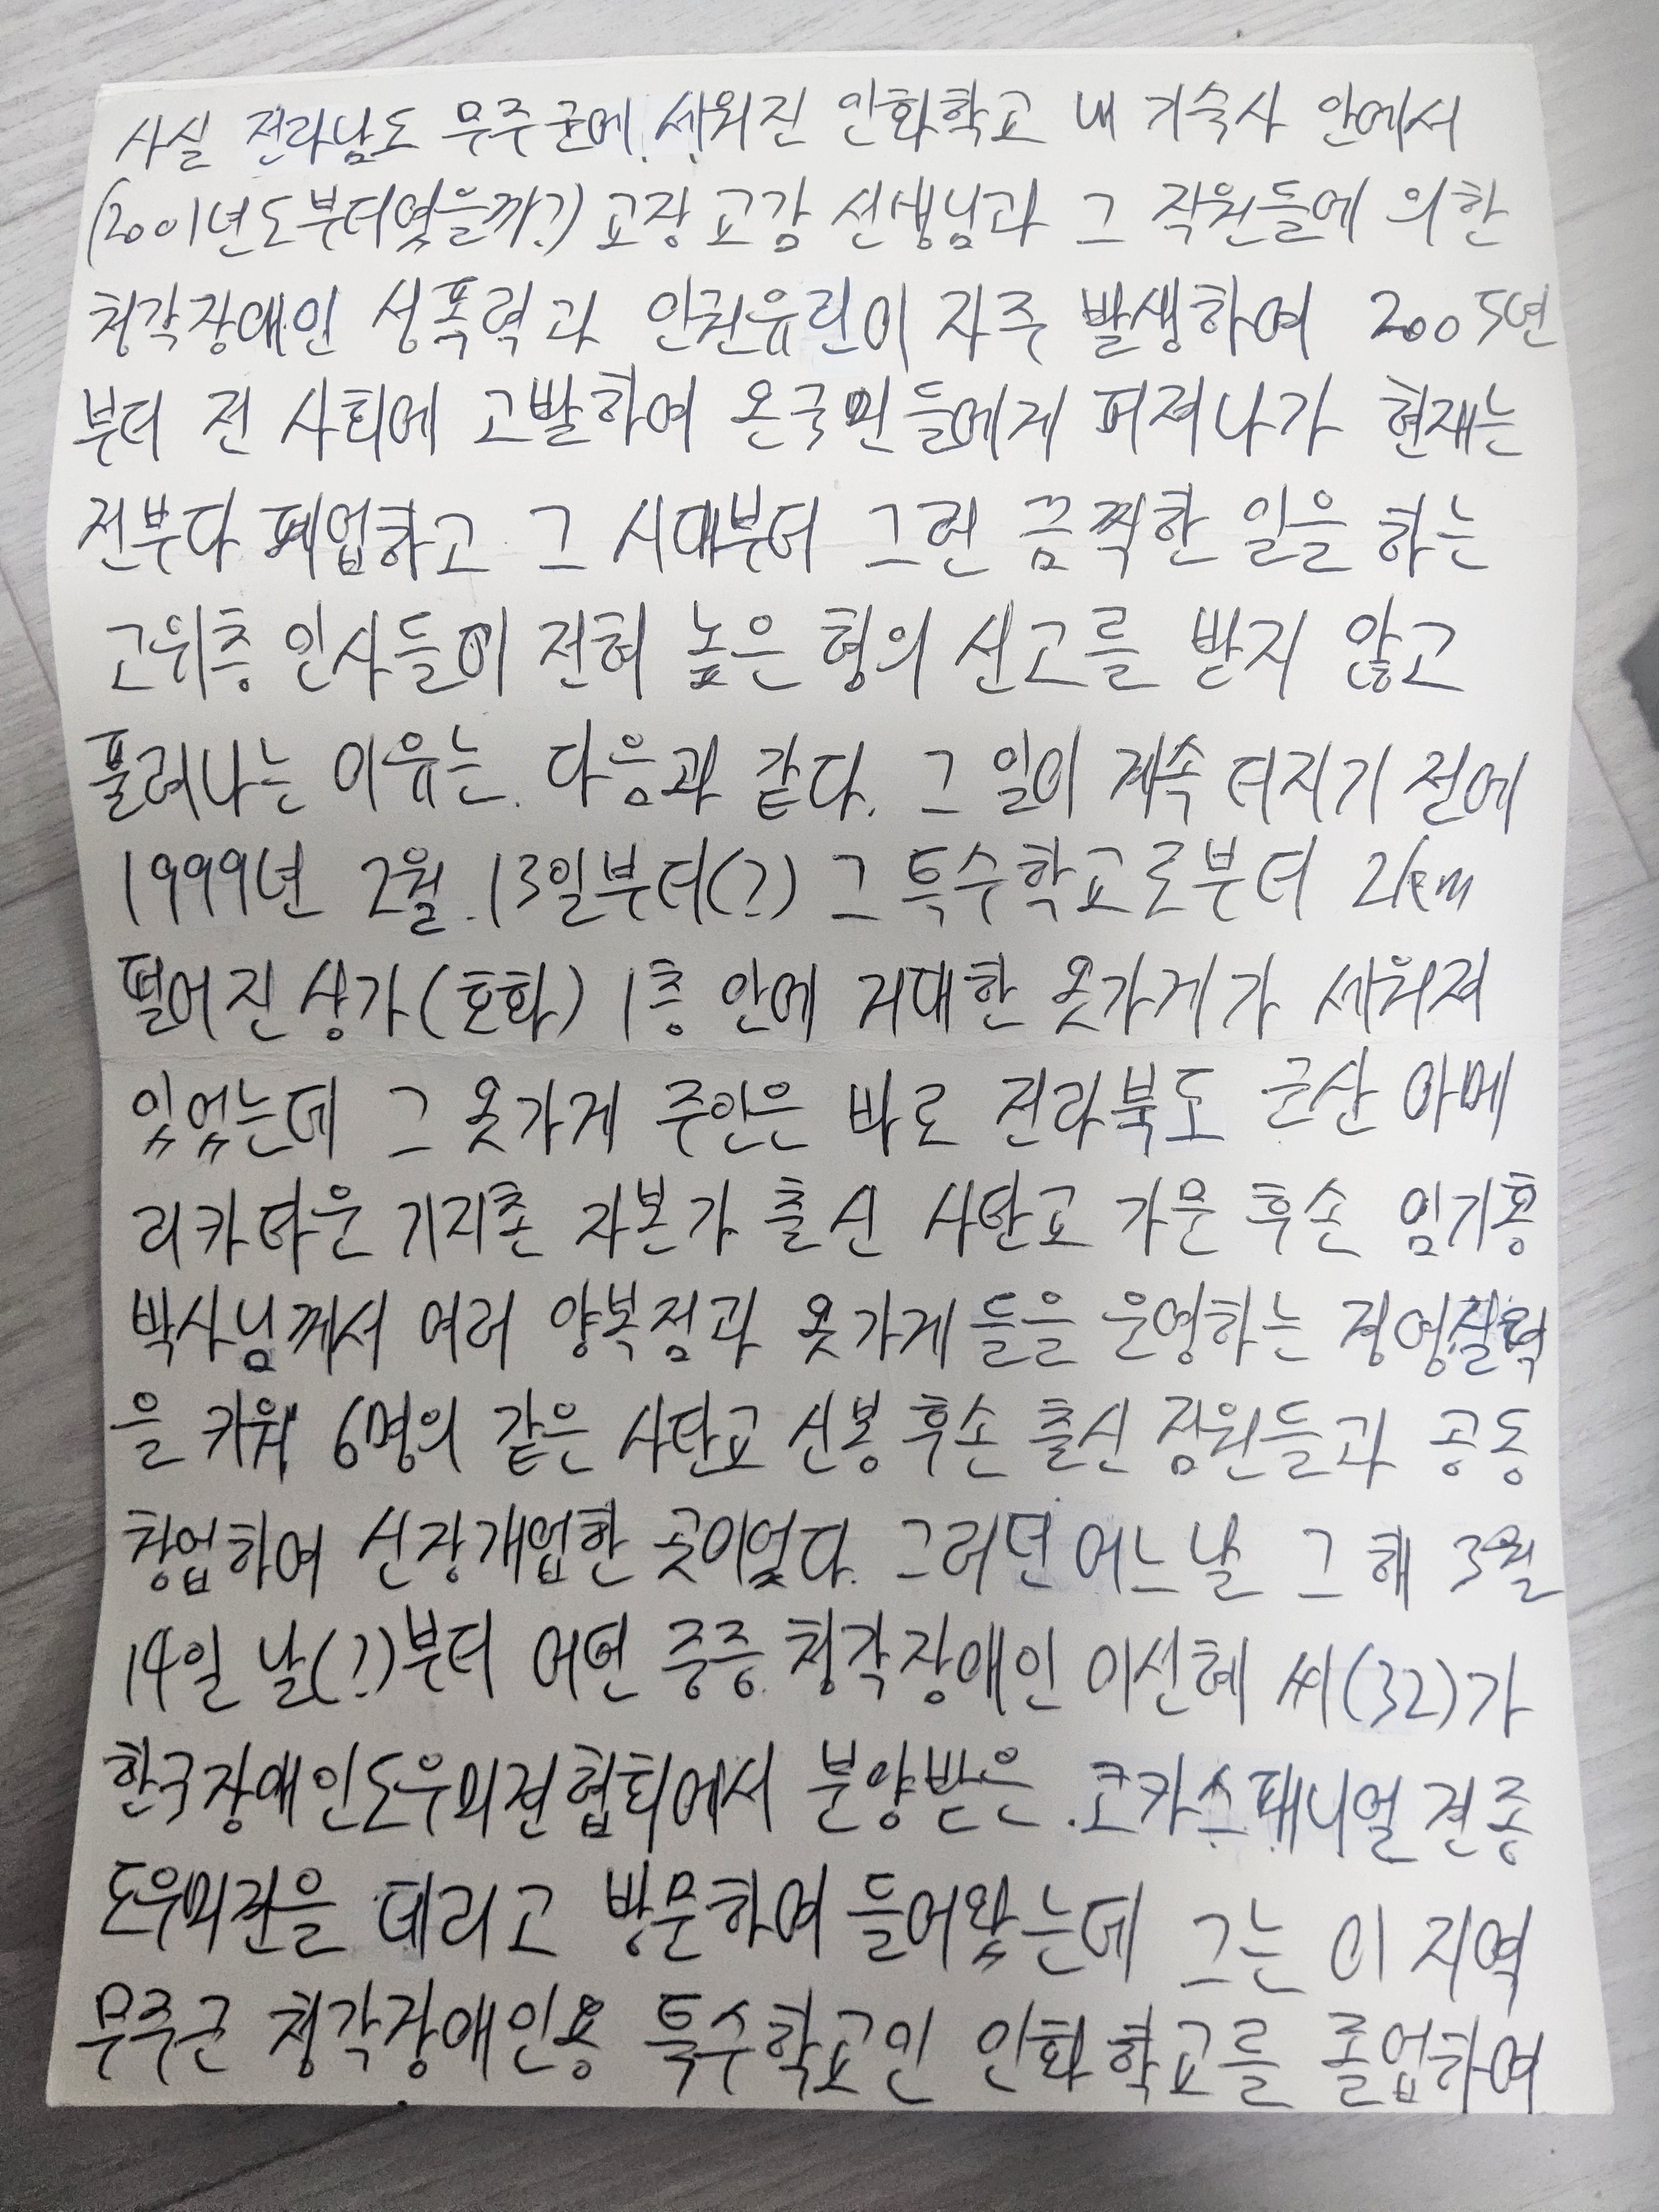 사실 전라남도 무주군에 세워진 인화학교 내 기숙사 안에서
(2001년도부터였을까?) 교장 교감 선생님과 그 직원들에 의한
청각장애인 성폭력과 인권유린이 자주 발생하여 2005년
부터 전 사회에 고발하여 온국민들에게 퍼져나가 현재는
전부다 폐업하고 그 시대부터 그런 끔찍한 일을 하는
고위층 인사들이 전혀 높은 형의 선고를 받지 않고
풀려나는 이유는 다음과 같다. 그 일이 계속 터지기 전에
1999년 2월 13일부터(?) 그 특수학교로부터 2km
떨어진 상가(호화) 1층 안에 거대한 옷가게가 세워져
있었는데 그 옷가게 주인은 바로 전라북도 군산 아메
리카타운 기지촌 자본가 출신 사탄교 가문 후손 임기홍
박사님께서 여러 양복점과 옷가게들을 운영하는 경영실력
을 키워 6명의 같은 사탄교 신봉 후손 출신 점원들과 공동
창업하여 신장개업한 곳이었다. 그러던 어느날 그 해 3월
14일 날(?)부터 어떤 중증 청각장애인 이선혜 씨(32)가
한국장애인도우미견협회에서 분양받은 코카스패니얼 견종
도우미견을 데리고 방문하여 들어왔는데 그는 이 지역
무주군 청각장애인용 특수학교인 인화학교를 졸업하여